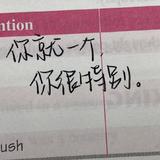 ntion
你就一个,
你很特别。
ush